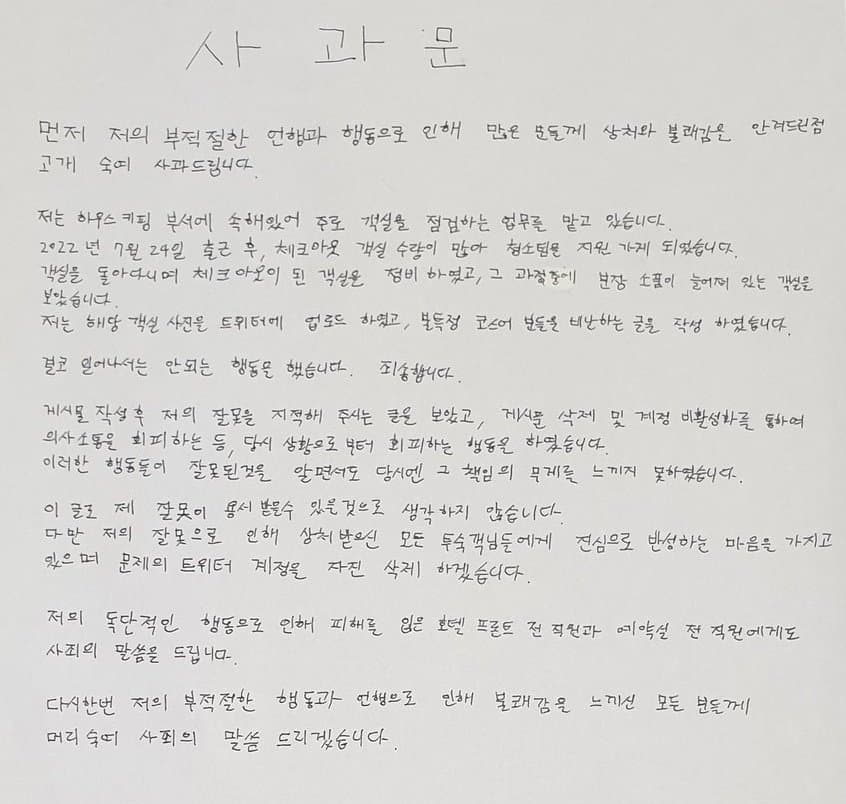 사과문
먼저 저의 부적절한 언행과 행동으로 인해 많은 분들께 상처와 불쾌감을 안겨드린점
고개 숙여 사과드립니다.
저는 하우스키핑 부서에 속해있어 주로 객실을 점검하는 업무를 맡고 있습니다.
2022년 7월 24일 출근 후, 체크아웃 객실 수량이 많아 청소팀을 지원 가게 되었습니다.
객실을 돌아다니며 체크아웃이 된 객실을 정비 하였고, 그 과정중에 분장 소품이 늘어져 있는 객실을
보았습니다.
저는 해당 객실 사진을 트위터에 업로드 하였고, 불특정 코스어 분들을 비난하는 글을 작성 하였습니다.
결코 일어나서는 안되는 행동을 했습니다. 죄송합니다.
게시물 작성후 저의 잘못을 지적해 주시는 글을 보았고, 게시물 삭제 및 계정 비활성화를 통하여
의사소통을 회피하는 등, 당시 상황으로부터 회피하는 행동을 하였습니다.
이러한 행동들이 잘못된것을 알면서도 당시엔 그 책임의 무게를 느끼지 못하였습니다.
이 글로 제 잘못이 용서 받을수 있을것으로 생각하지 않습니다.
다만 저의 잘못으로 인해 상처받으신 모든 투숙객님들에게 진심으로 반성하는 마음을 가지고
있으며 문제의 트위터 계정을 자진 삭제 하겠습니다.
저의 독단적인 행동으로 인해 피해를 입은 호텔 프론트 전 직원과 예약실 전 직원에게도
사죄의 말씀을 드립니다.
다시한번 저의 부적절한 행동과 언행으로 인해 불쾌감을 느끼신 모든 분들께
머리숙여 사죄의 말씀 드리겠습니다.